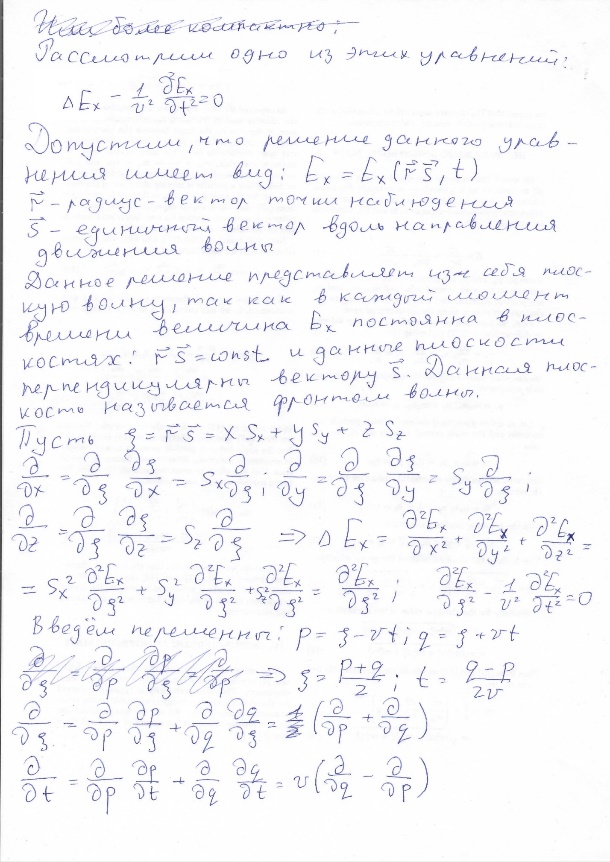 Или более компактно:
Рассмотрим одно из этих уравнений:
ΔEₓ − 1/v² ∂²Eₓ/∂t² = 0
Допустим, что решение данного урав-
нения имеет вид: Eₓ = Eₓ(r⃗ s⃗, t)
r⃗ - радиус-вектор точки наблюдения
s⃗ - единичный вектор вдоль направления
движения волны
Данное решение представляет из себя плос-
кую волну, так как в каждый момент
времени величина Eₓ постоянна в плос-
костях: r⃗ s⃗ = const и данные плоскости
перпендикулярны вектору s⃗. Данная плос-
кость называется фронтом волны.
Пусть ξ = r⃗ s⃗ = x Sₓ + y Sy + z Sz
∂/∂x = ∂/∂ξ ∂ξ/∂x = Sₓ ∂/∂ξ; ∂/∂y = ∂/∂ξ ∂ξ/∂y = Sy ∂/∂ξ;
∂/∂z = ∂/∂ξ ∂ξ/∂z = Sz ∂/∂ξ => Δ Eₓ = ∂²Eₓ/∂x² + ∂²Eₓ/∂y² + ∂²Eₓ/∂z² =
= Sₓ² ∂²Eₓ/∂ξ² + Sy² ∂²Eₓ/∂ξ² + Sz² ∂²Eₓ/∂ξ² = ∂²Eₓ/∂ξ²; ∂²Eₓ/∂ξ² − 1/v² ∂²Eₓ/∂t² = 0
Введём переменны: p = ξ − vt; q = ξ + vt
∂/∂ξ = ∂/∂p ∂p/∂ξ = ∂/∂p => ξ = (p+q)/2; t = (q−p)/2v
∂/∂ξ = ∂/∂p ∂p/∂ξ + ∂/∂q ∂q/∂ξ = (∂/∂p + ∂/∂q)
∂/∂t = ∂/∂p ∂p/∂t + ∂/∂q ∂q/∂t = v(∂/∂q − ∂/∂p)